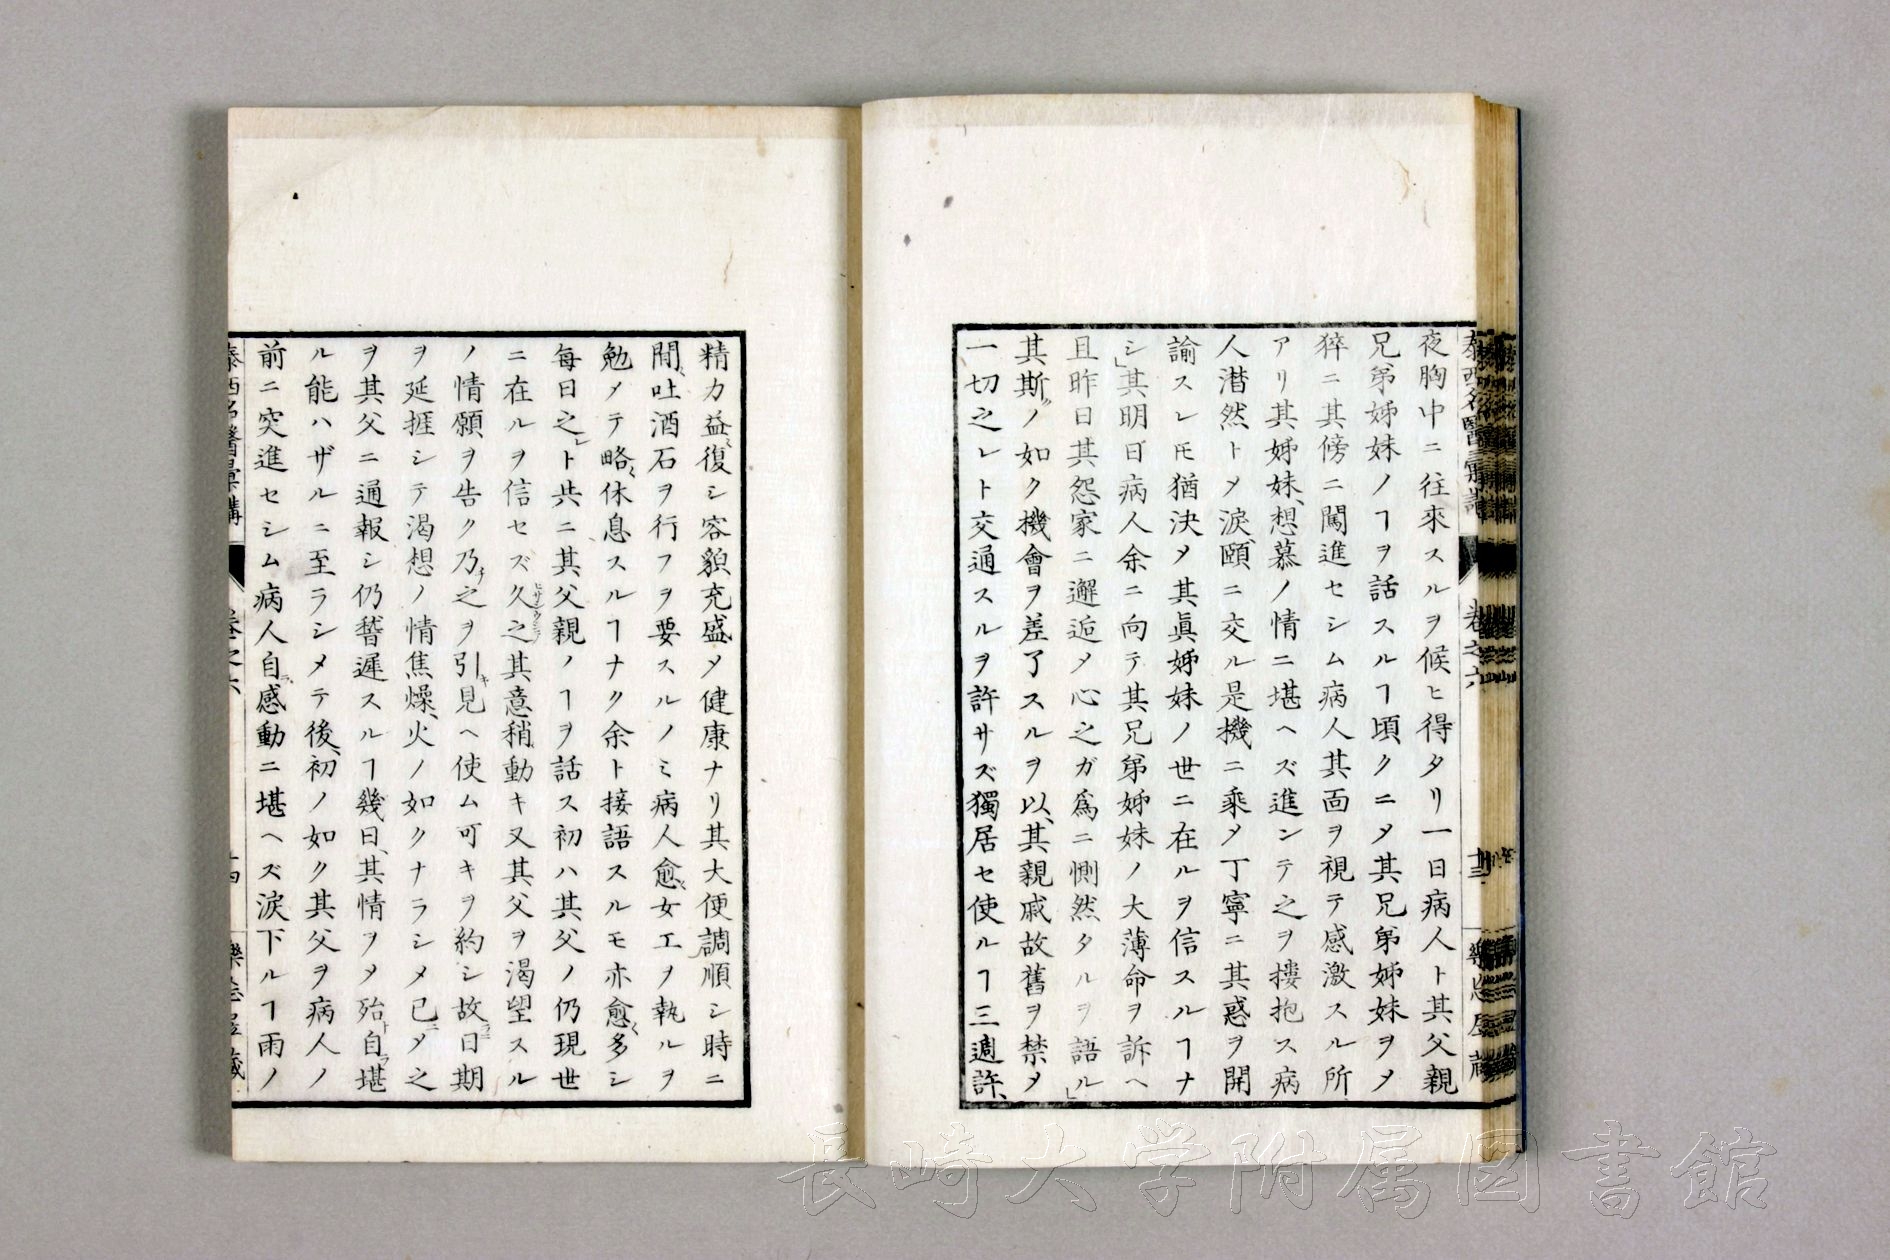 前ニ突進セシム病人自ラ感動ニ堪ヘズ淚下ルヿ雨ノ
ル能ハザルニ至ラシメテ後、初ノ如ク其父ヲ病人ノ
ヲ其父ニ通報シ仍稽遲スルヿ幾日、其情ヲメ殆ト自ラ堪
ヲ延捱シテ渴想ノ情焦燥、火ノ如クナラシメ已ニメ之
ノ情願ヲ告ク乃チ之ヲ引キ見ヘ使ム可キヲ約シ故ラニ日期
ニ在ルヲ信セズ久之其意稍動キ又其父ヲ渴望スル
每日之レト共ニ其父親ノヿヲ話ス初ハ其父ノ仍現世
勉メテ略休息スルヿナク余ト接語スルモ亦愈多シ
間、吐酒石ヲ行フヲ要スルノミ病人愈女工ヲ執ルヲ
精力益復シ容貌充盛メ健康ナリ其大便調順シ時ニ
夜胸中ニ往來スルヲ候ヒ得タリ一日病人ト其父親
兄弟姊妹ノヿヲ話スルヿ頃クニメ其兄弟姊妹ヲメ
猝ニ其傍ニ闖進セシム病人其面ヲ視テ感激スル所
アリ其姊妹、想慕ノ情ニ堪ヘズ進ンテ之ヲ摟抱ス病
人潜然トメ淚頤ニ交ル是機ニ乘メ丁寧ニ其惑ヲ開
諭スレ𪜈猶決メ其眞姊妹ノ世ニ在ルヲ信スルヿナ
シ」其明日病人余ニ向テ其兄弟姊妹ノ大薄命ヲ訴ヘ
且昨日其怨家ニ邂逅メ心之ガ爲ニ惻然タルヲ語ル」
其斯ノ如ク機會ヲ差了スルヲ以、其親戚故舊ヲ禁メ
一切之レト交通スルヲ許サズ獨居セ使ルヿ三週許、
泰西名醫彙講
卷之六
十三
長崎大学附属図書館